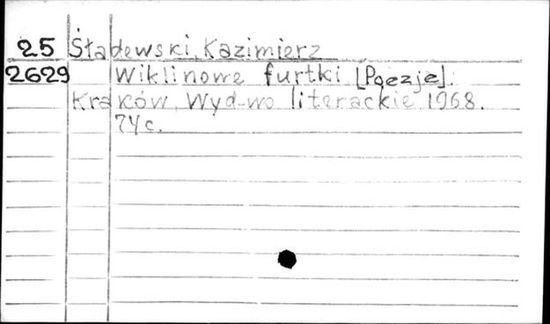 25 Śładewski, Kazimierz
2629 Wiklinowe furtki [Poezje].
Kraków, Wyd-wo literackie, 1968.
74 c.